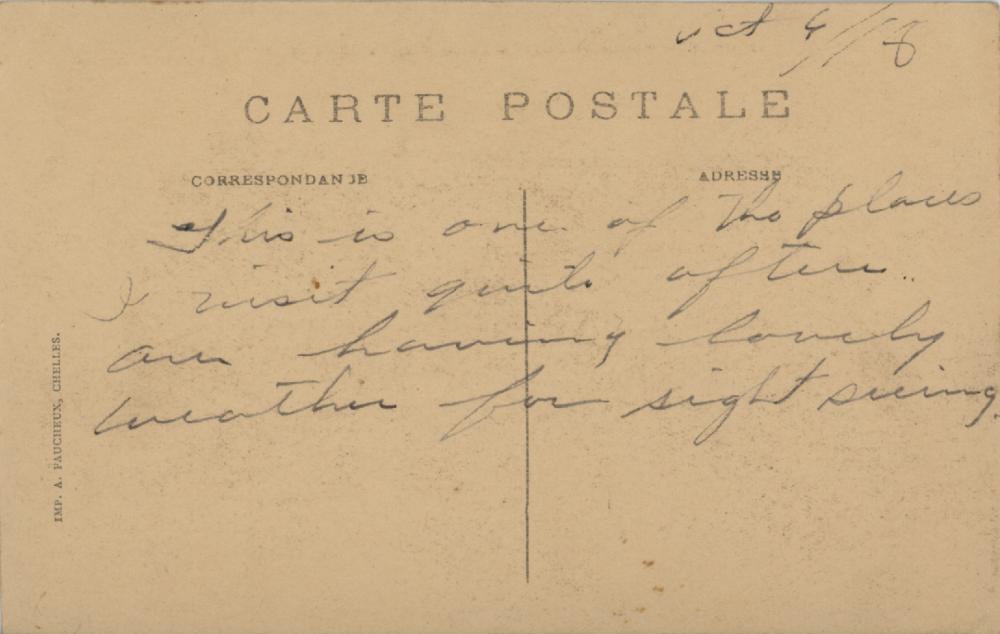 Oct 6/18
CARTE POSTALE
CORRESPONDANCE
ADRESSE
This is one of the places
I visit quite often..
am having lovely
weather for sight seeing.
IMP. A. FAUCHEUX, CHELLES.